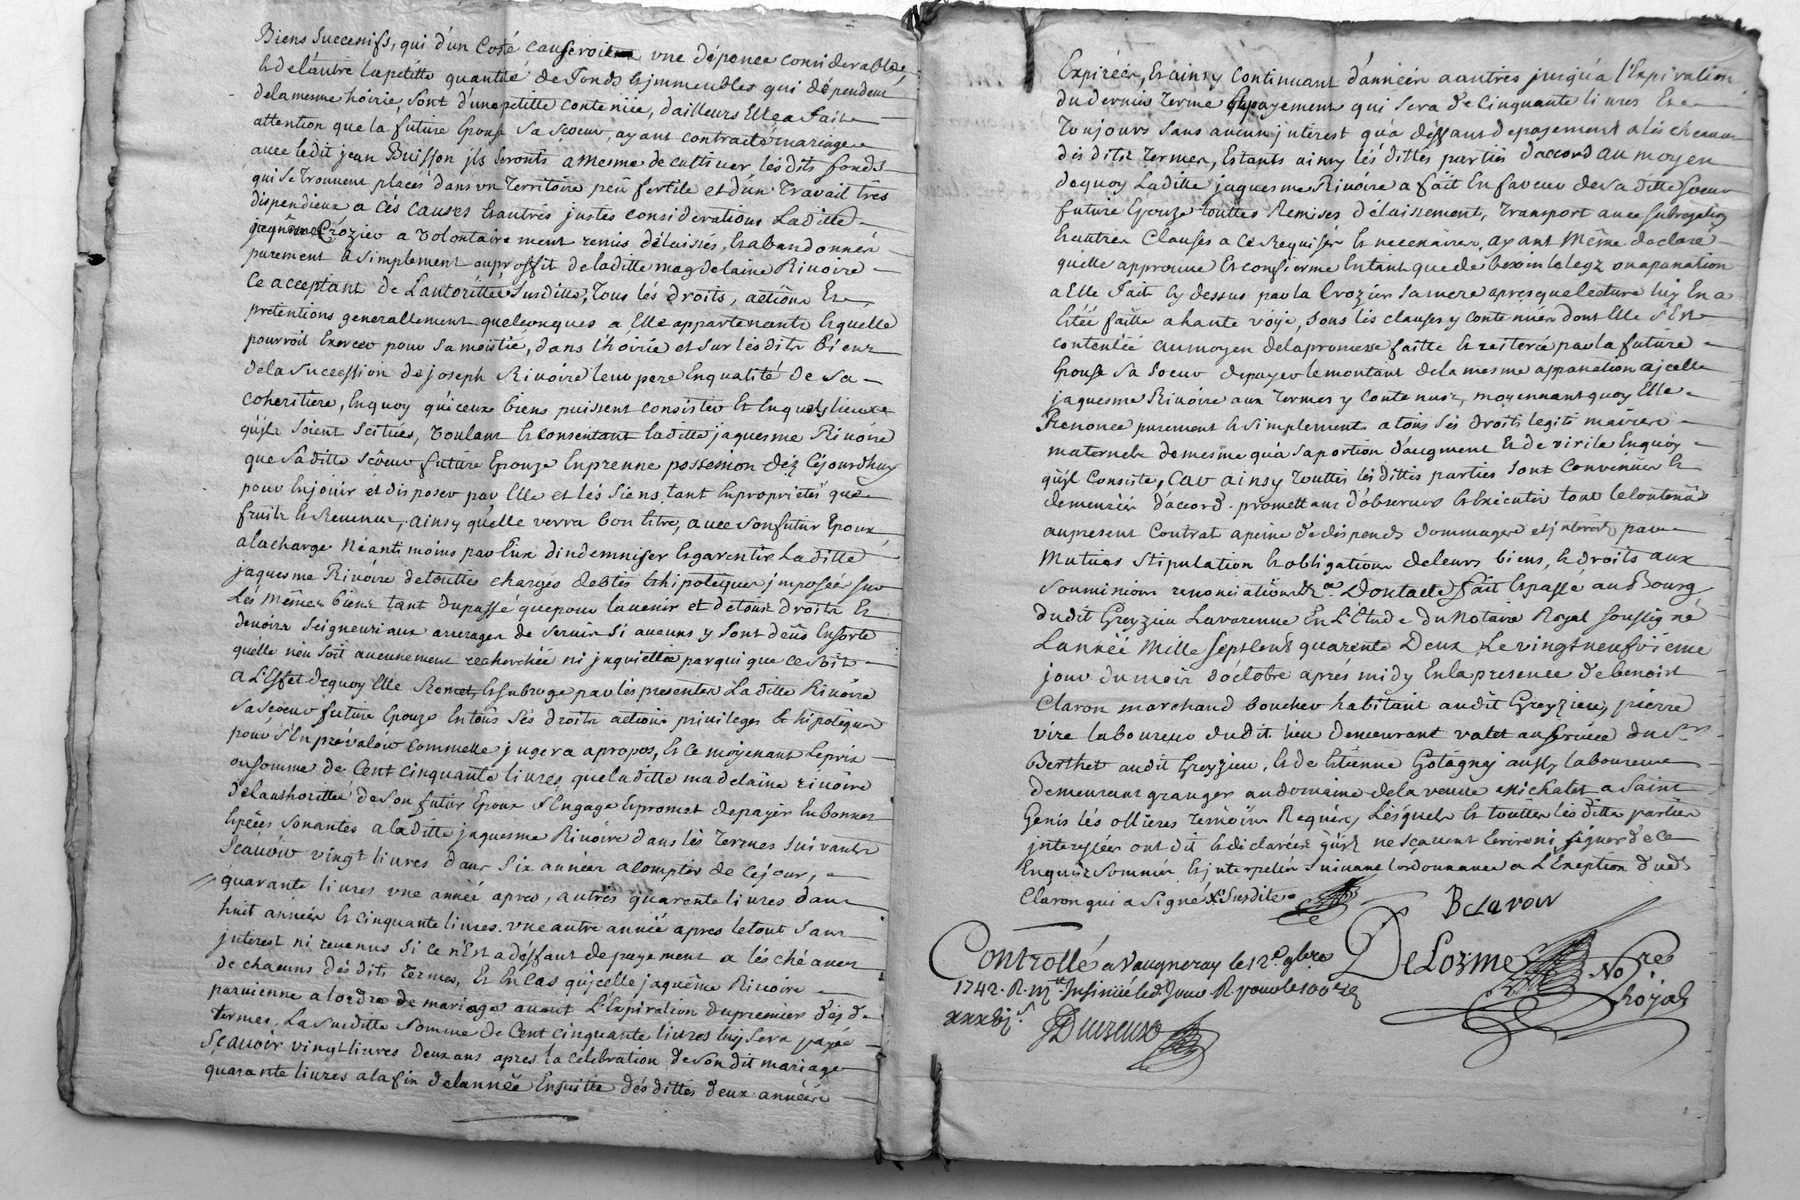 Biens Successifs, qui d'un Costé causeroit une dépence considerable,
& de l'autre la petitte quantité de fonds & jmmeubles qui dépendent
de la mesme hoirie, sont d'une petitte contenüe, d'ailleurs Elle a fait
attention que la future Epouse Sa Soeur, ayant contraité mariage
avec ledit jean Buisson jls seronts a mesme de cultiver lésdits fonds
qui se trouvent placés dans un Territoire peu fertile et d'un Travail trés
dispendieux a cés causes & autrés justes considerations Laditte
jaquême Crózier a volontairement remis délaissés, & abandonnér
purement & simplement au proffit de laditte magdelaine Rivoire
Ce acceptant de L'autorittée Susditte, Tous lés droits, actions Et
prétentions generallement quelconques a Elle appartenants & quelle
pourroit Exercer pour sa moitié, dans l'hoirie et sur lésdits biens
de la succession de joseph Rivoire leur pere En qualité de sa
coheritiere, En quoy qu'iceux biens puissent consister & En quels lieux
qujls soient scitués, voulant & consentant laditte jaquesme Rivoire
que Saditte Soeur future Epouze En prenne possession déz cejourdhuy
pour En jouir et disposer par Elle et lés Siens, tant En proprietés que
fruits & Revenus, ainsy qu'elle verra bon être, avec son futur Epoux,
a la charge Néantmoins par Eux d'indemniser & garentir Laditte
jaquesme Rivoire de touttes charges debtes & hipotéques jmposéé sur
lés Mêmes biens tant du passé que pour lavenir et de tous droits &
devoirs seigneuriaux arrerages de servis si aucuns y sont deûs En sorte
qu'elle n'en soit aucunement recherchéé ni jnquiettéé par qui que ce soit
A L'Effet de quoy Elle Remet, & subroge par lés presentes Laditte Rivoire
Sa soeur future Epouze En toûs sés droits actions privileges & hipotéques
pour s'En prévaloir comme Elle jugera a propos, Et ce moyenant Le prix
ou somme de Cent cinquante livres, que laditte madelaine rivoire
de l'authorittée de son futur Epoux s'Engage & promet de payér En bonnes
Espéces sonantes a laditte jaquesme Rivoire dans lés Termes suivants
Sçavoir vingt livres dans Six annéés a compter de Cejour,
quarante livres une annéé aprés, autrés quarente livres dans
huit annéés & cinquante livres une autre annéé apres le tout sans
jnterest ni revenus si ce n'Est a déffaut de payement a l'éschéance
de chacuns désdits Termes, Et En Cas qu'jcelle jaquême Rivoire
parvienne a lordre de mariage avant L'Expiration du premier désd.
Termes, La susditte somme de Cent cinquante livres luy sera payéé
Sçavoir vingt livres deux ans aprés la célébration de son dit mariage
quarante livres a la fin de lannéé Ensuitte désdittes deux annéés
Expiréés, & ainsy continuant d'annéés a autres jusqu'a l'Expiration
du dernier terme & payement qui sera de cinquante livres Et
Toujours sans aucun jnterest qu'a déffaut de payement a lés cheance
désdits Termes, Estants ainsy lésdittes parties daccord au moyen
dequoy Laditte jaquesme Rivoire a fait En faveur de saditte Soeur
future Epouze touttes Remises délaissement, transport avec subrogation
& autres Clauses a ce Requises & necessaires, ayant Même declaré
qu'elle approuve & confierme En tant que de besoin le legz ou apanation
a Elle fait cy dessus par la Crozier sa mere aprés que lecture luy En a
Estéé faitte a haute voye, sous lés clauses y contenues dont Elle s'Est
contentéé au moyen de la promesse faitte & reiteréé par la future
Epouse Sa Soeur de payer le montant de la mesme appanation a jcelle
jaquesme Rivoire aux Termes y contenus, moyennant quoy Elle
Renonce purement & simplement a tous sés droits legitimaires
maternels de mesme qu'a sa portion d'augment & de virile En quoy
qu'jl Consiste, car ainsy touttes lésdittes parties sont convenues &
demeuréés d'accord. promettant d'observer & Exécuter tout le contenû
au present Contrat a peine de dépends dommages et jnterêts par
mutües stipulation & obligations de leurs biens, & droits aux
soumissions renonciations &a. Dont acte fait & passé au Bourg
dudit Greyzieu Lavarenne En L'Etude du Notaire Royal soussigné
Lannéé Mille Sept Cents quarente Deux Le vingt neufvieme
jour du mois d'octobre aprés midy En la presence de benoist
Claron marchand boucher habitant audit Greyzieu, pierre
vire laboureur dudit lieu demeurant valet au service du Sr.
Berthet audit Greyzieu, & de Etienne Gotagny aussy laboureur
demeurant granger au domaine de la veuve michalet a Saint
Genis lés ollieres témoins Requis, Lésquels & touttes lésdittes parties
jnteresséés ont dit & declaréés qu'jls ne sçavent Ecrire ni signer de ce
Enquis Sommés & jnterpellés suivant lordonnance a L'Exception dudt.
Claron qui a Signé Susdite
B Claron
Controllé a Vaugneray le 12e. 9bre
1742. R.
DeLorme
Nore.
Royal
Duzeux